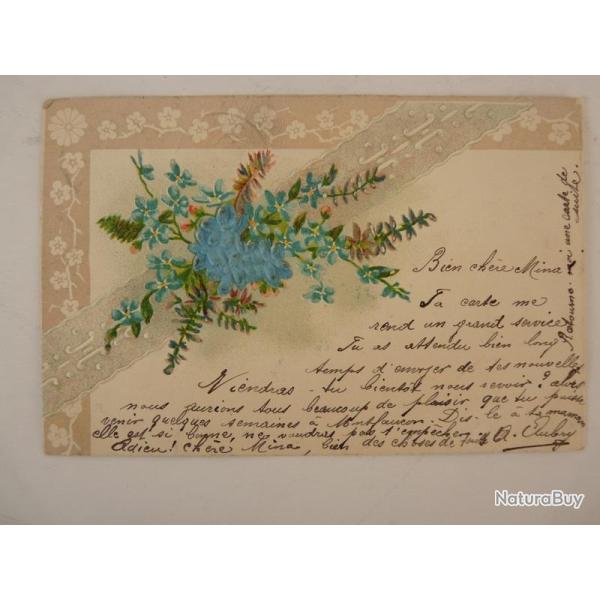 Bien chère Mina
Ta carte me
rend un grand service
Tu as attendu bien long
temps d'envoyer de tes nouvelles
Viendras-tu bientôt nous revoir?
nous aurions tous beaucoup de plaisir que tu puisse
venir quelques semaines à Montfaucon. Dis-le à ta maman
elle est si bonne, ne voudras pas t'empêcher.
Adieu! chère Mina, bien des choses de tous A. Aubry
Retourne-moi une carte de
suite.
NaturaBuy